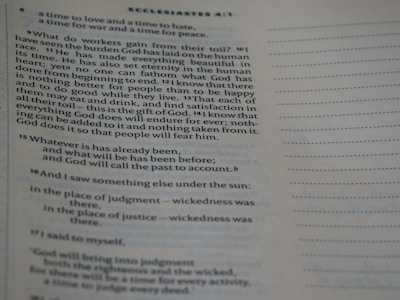 ECCLESIASTES 4:1
8 a time to love and a time to hate,
a time for war and a time for peace.
9 What do workers gain from their toil? 10 I
have seen the burden God has laid on the human
race. 11 He has made everything beautiful in
its time. He has also set eternity in the human
heart; yet no one can fathom what God has
done from beginning to end. 12 I know that there
is nothing better for people than to be happy
and to do good while they live. 13 That each of
them may eat and drink, and find satisfaction in
all their toil – this is the gift of God. 14 I know that
everything God does will endure for ever; noth-
ing can be added to it and nothing taken from it.
God does it so that people will fear him.
15 Whatever is has already been,
and what will be has been before;
and God will call the past to account. b
16 And I saw something else under the sun:
in the place of judgment – wickedness was
there,
in the place of justice – wickedness was
there.
17 I said to myself,
'God will bring into judgment
both the righteous and the wicked,
for there will be a time for every activity,
a time to judge every deed.'